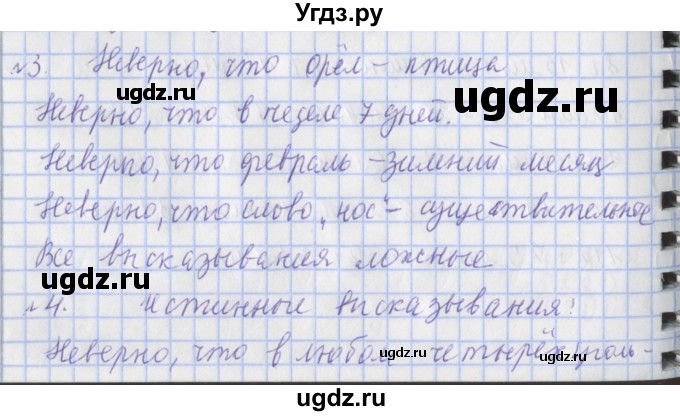 Угdз.ру
№3. Неверно, что орёл – птица
ugdz.ru
Неверно, что в неделе 7 дней.
ugdz.ru ugdz.ru
Неверно, что февраль – зимний месяц
ugdz.ru
Неверно, что слово „нос“ – существительное
Все высказывания ложные
ugdz.ru ugdz.ru
№4. Истинные высказывания:
Неверно, что в любом четырёхуголь-
ugdz.ru ugdz.ru
ugdz.ru